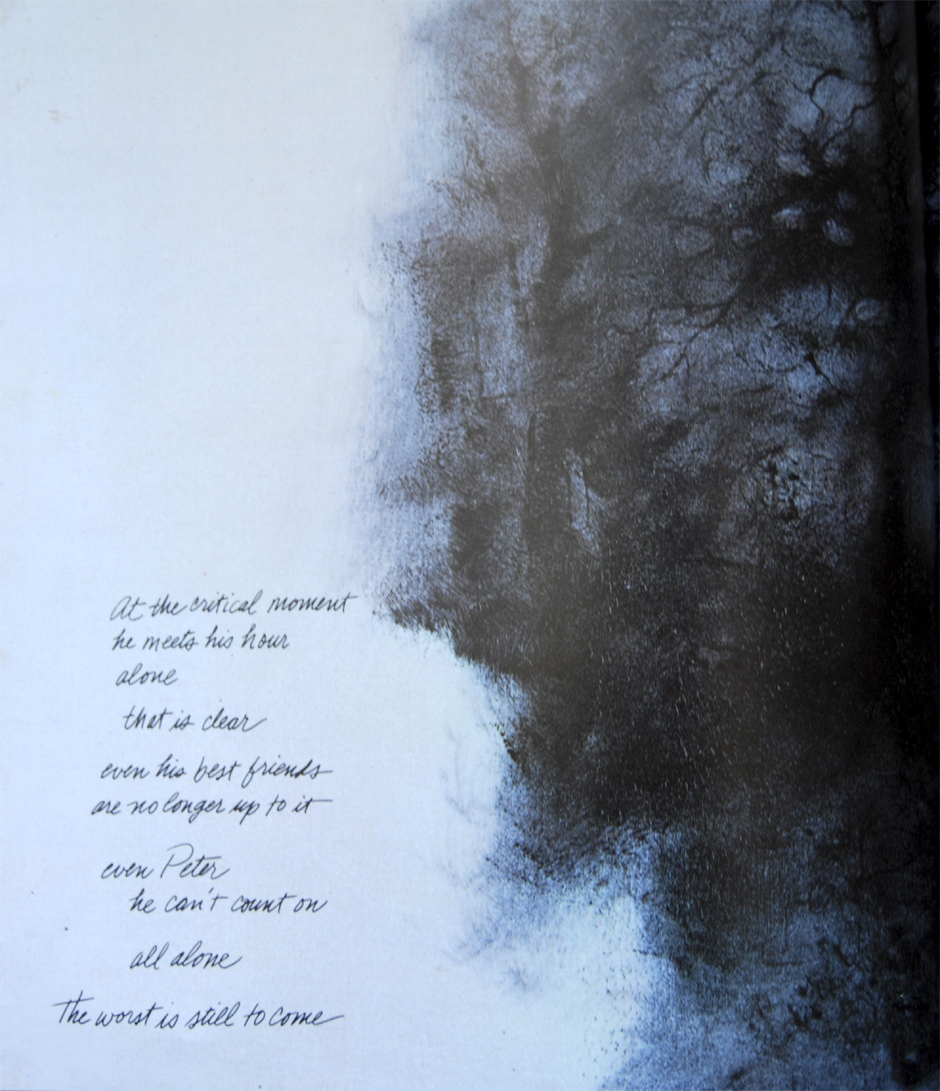 At the critical moment
he meets his hour
alone
that is clear
even his best friends
are no longer up to it
even Peter
he can't count on
all alone
The worst is still to come